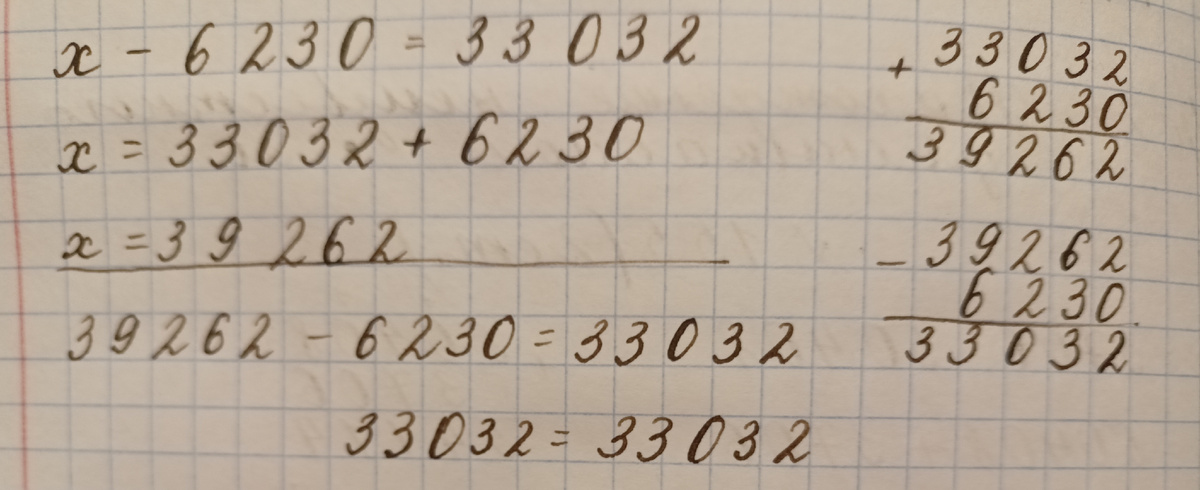 x - 6230 = 33032
x = 33032 + 6230
x = 39262
39262 - 6230 = 33032
33032 = 33032
+ 33032
6230
39262
- 39262
6230
33032